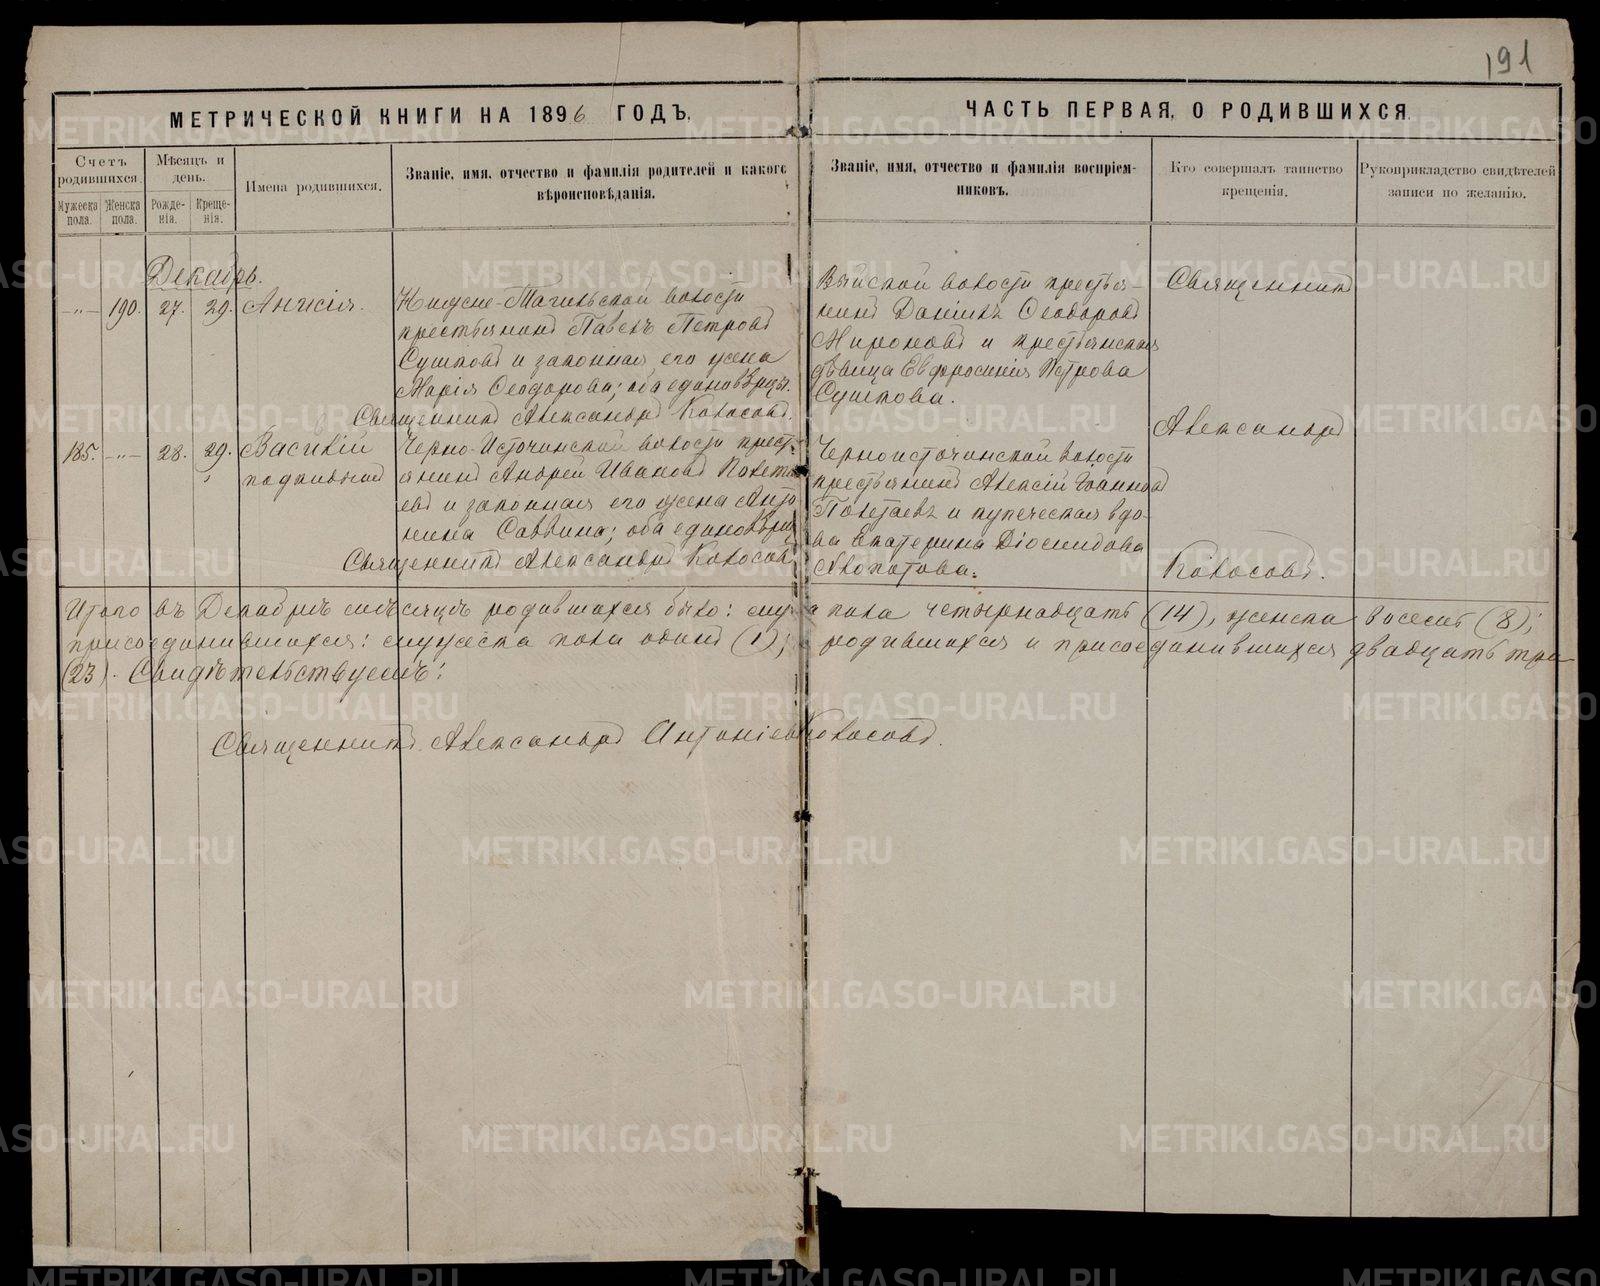 191
МЕТРИЧЕСКОЙ КНИГИ НА 1896 ГОДЪ.
ЧАСТЬ ПЕРВАЯ, О РОДИВШИХСЯ.
Счетъ родившихся.
Мужеска пола.
Женска пола.
Мѣсяцъ и день.
Рожденія.
Крещенія.
Имена родившихся.
Званіе, имя, отчество и фамилія родителей и какого
вѣроисповѣданія.
Званіе, имя, отчество и фамилія воспріем-
никовъ.
Кто совершалъ таинство
крещенія.
Рукоприкладство свидѣтелей
записи по желанію.
Декабрь.
-"- 190. 27. 29. Анисія.
Нижне-Тагильской волости
крестьянинъ Павелъ Петровъ
Сушковъ и законная его жена
Марія Ѳеодорова; оба единовѣрцы.
Священникъ Александръ Колосовъ.
Выйской волости крестья-
нинъ Даніилъ Ѳеодоровъ
Мироновъ и крестьянская
дѣвица Евфросинія Петрова
Сушкова.
Священникъ
Александръ
Колосовъ.
185. -"- 28. 29. Василій
подкинутый
Черно-Источинской волости крест
янинъ Андрей Ивановъ Полета
евъ и законная его жена Анто
нина Саввина; оба единовѣрц
Священникъ Александръ Колосовъ
Черноисточинской волости
крестьянинъ Алексій Іоанновъ
Полетаевъ и купеческая вдо-
ва Екатерина Діомидова
Аволатова.
Итого въ Декабрѣ мѣсяцѣ родившихся было: муж а пола четырнадцать (14), женска восемь (8);
присоединившихся: мужеска пола одинъ (1); родившихся и присоединившихся двадцать три
(23). Свидѣтельствуемъ:
Священникъ Александръ Антоніевъ Колосовъ.
METRIKI.GASO-URAL.RU